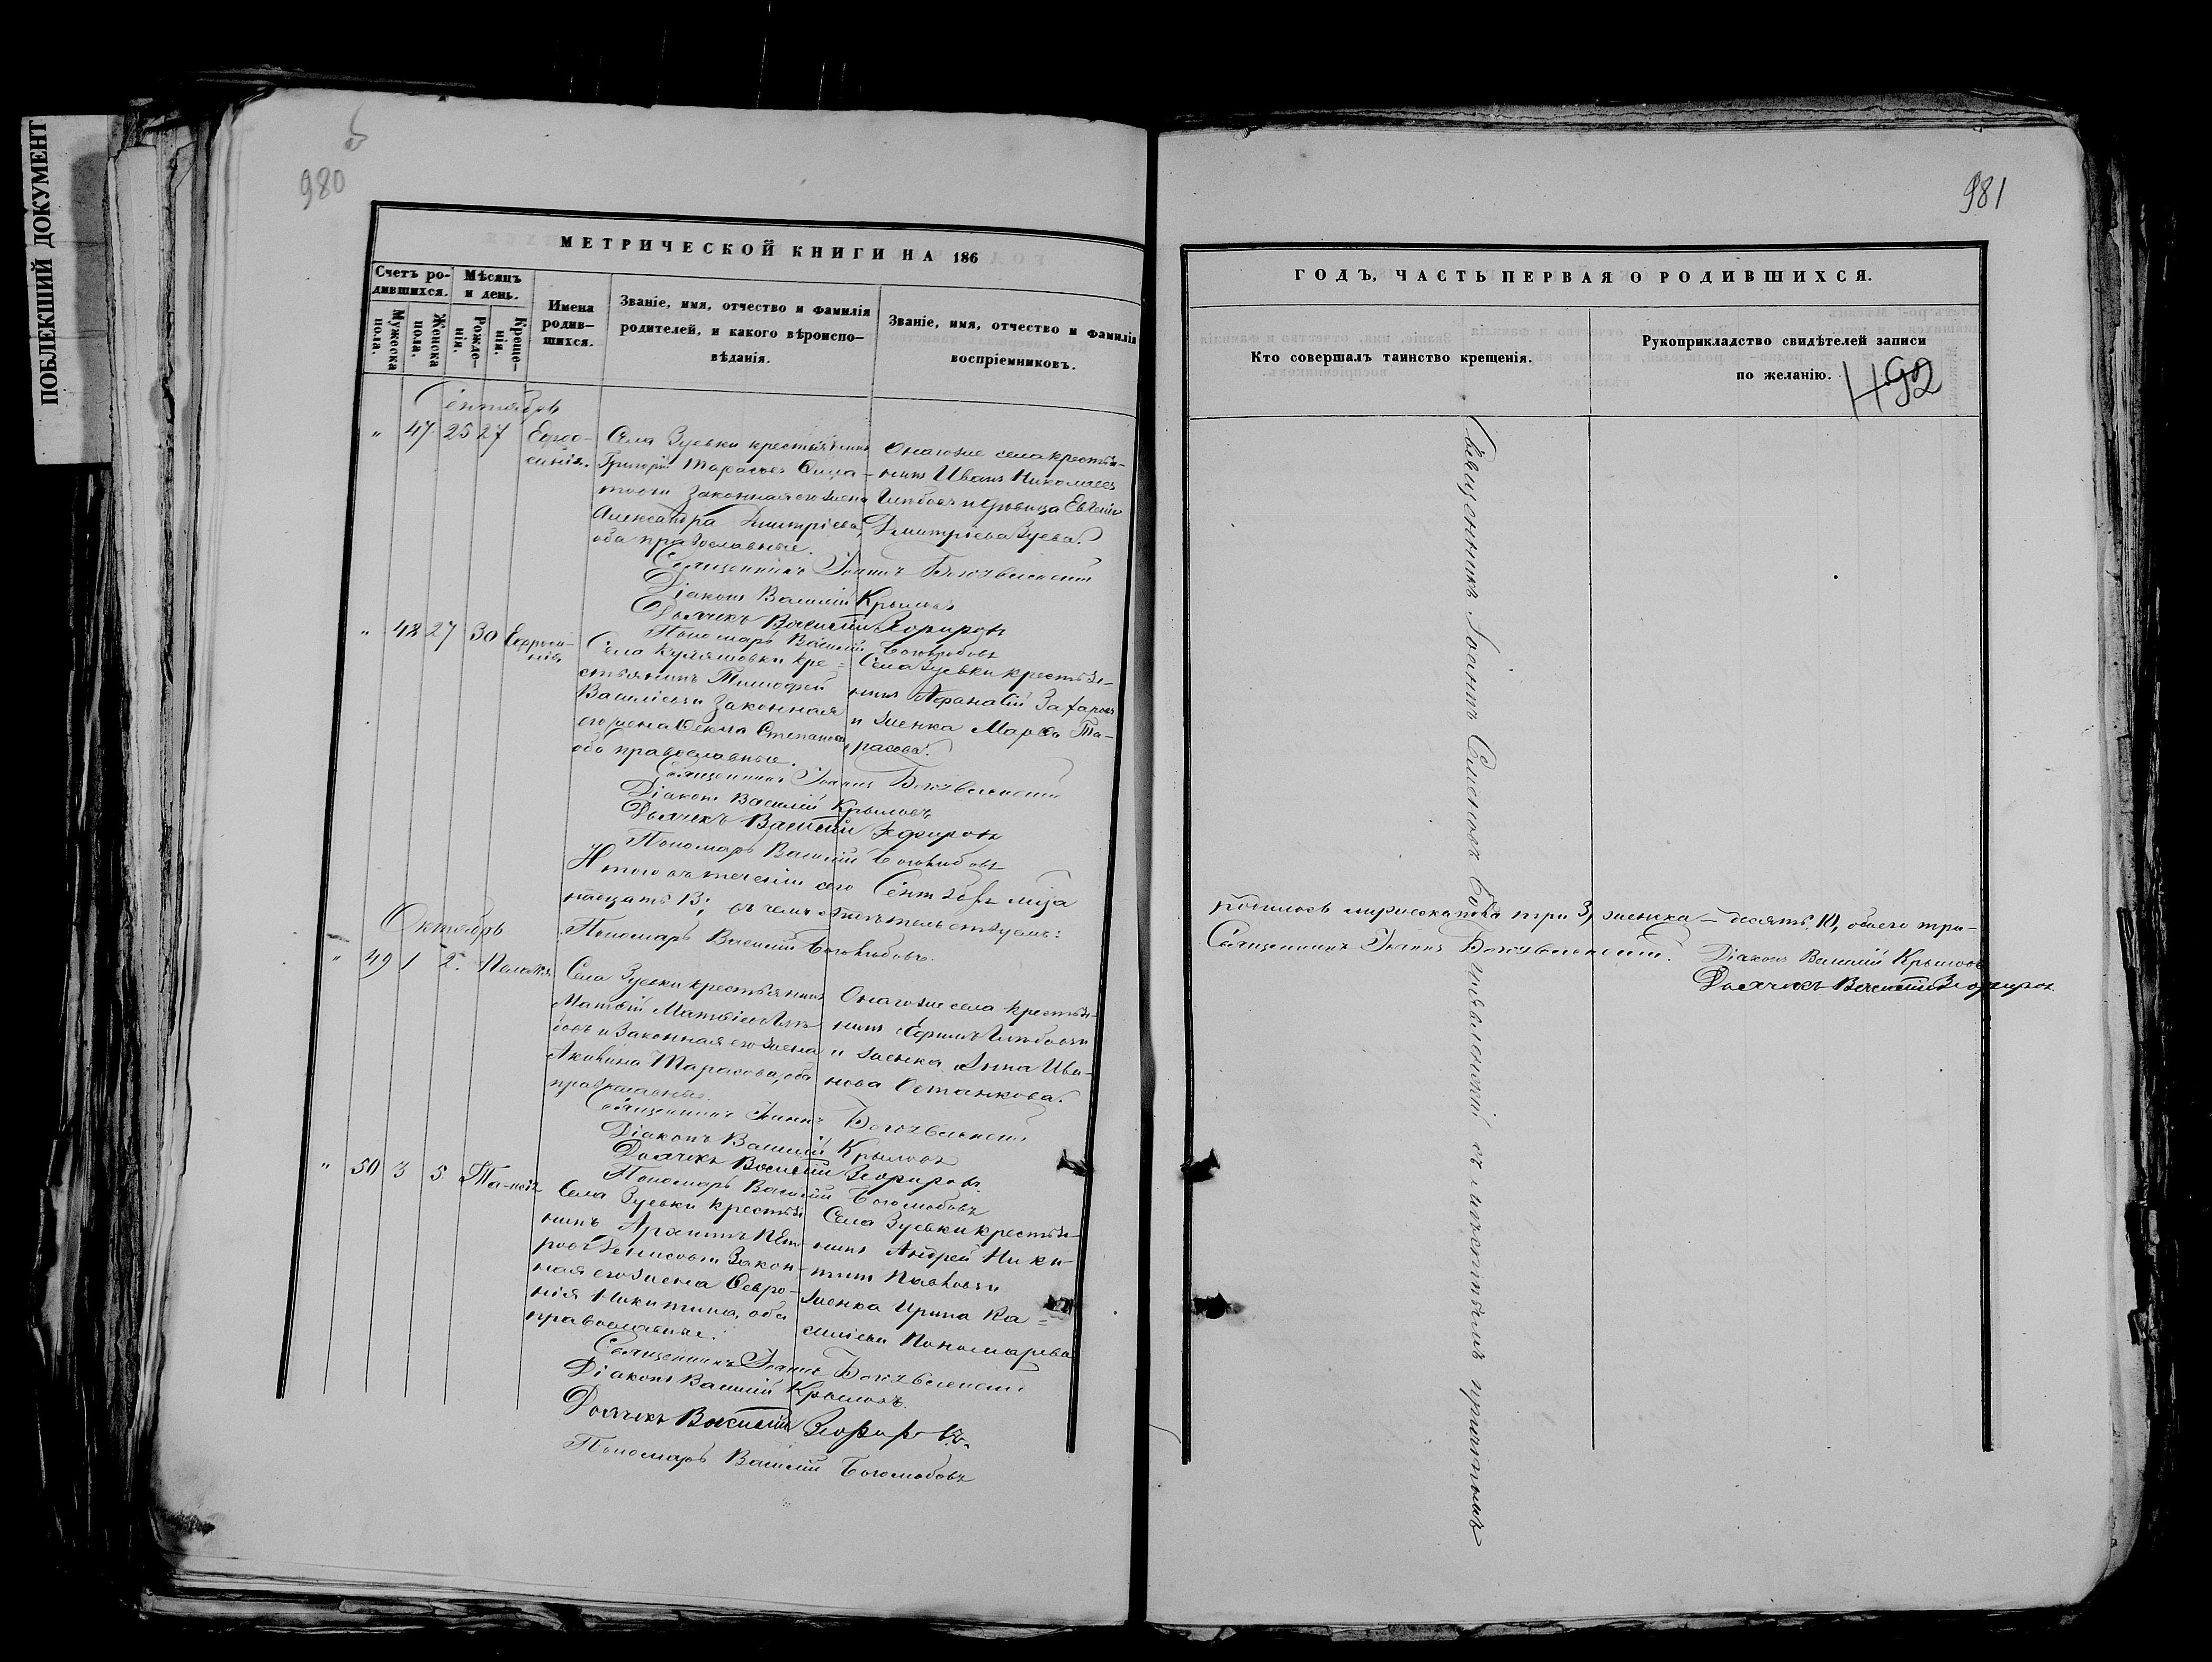 ПОБЛЕКШИЙ ДОКУМЕНТ
980
МЕТРИЧЕСКОЙ КНИГИ НА 186
Счетъ ро-
дившихся.
Мужеска
пола.
Женска
пола.
Мѣсяцъ
и день.
Рожде-
нія.
Креще-
нія.
Имена
родив-
шихся.
Званіе, имя, отчество и фамилія
родителей, и какого вѣроиспо-
вѣданія.
Званіе, имя, отчество и фамилія
воспріемниковъ.
Сентябрь
" 47 25 27
Евфро-
синія.
Села Зуевки крестьянинъ
Григорій Тарасовъ
законная его жена
Александра Дмитріева,
оба православные.
Онагоже села крестья-
нинъ Иванъ Николаевъ
Глѣбовъ и дѣвица Евгенія
Дмитріева Зуева.
Священникъ Іоаннъ Богоявленскій
Діаконъ Василій Крыловъ
Дьячекъ Василій Зефировъ
Пономарь Василій Боголюбовъ
" 48 27 30
Евфроси-
нія
Села Кулешовки кре-
стьянинъ Тимофей
Васильевъ и законная
его жена Ѳекла Степанова,
оба православные.
Села Зуевки крестья-
нинъ Афанасій Захаровъ
и женка Марѳа Та-
расова.
Священникъ Іоаннъ Богоявленскій
Діаконъ Василій Крыловъ
Дьячекъ Василій Зефировъ
Пономарь Василій Боголюбовъ
Итого въ теченіи сего Сентября м-ца
надцать 13; въ чемъ свидѣтельствуемъ:
Пономарь Василій Боголюбовъ.
Октябрь
" 49 1 2.
Пелагія.
Села Зуевки крестьянинъ
Матвій Матвіевъ Глѣ-
бовъ и законная его жена
Акилина Тарасова, оба
православные.
Онагоже села крестья-
нинъ Ефимъ Глѣбовъ и
и женка Анна Ива-
нова Останкова.
Священникъ Іоаннъ Богоявленскій
Діаконъ Василій Крыловъ
Дьячекъ Василій Зефировъ.
Пономарь Василій Боголюбовъ
" 50 3 5
Села Зуевки крестья
нинъ Архипъ Пет-
ровъ Денисовъ и закон-
ная его жена Ѳевро-
нія Никитина, оба
православные.
Села Зуевки крестья-
нинъ Андрей Ники-
тинъ Павловъ и
женка Ирина Ва-
сильева Пономарева
Священникъ Іоаннъ Богоявленскій
Діаконъ Василій Крыловъ.
Дьячекъ Василій Зефировъ.
Пономарь Василій Боголюбовъ
981
ГОДЪ, ЧАСТЬ ПЕРВАЯ О РОДИВШИХСЯ.
Кто совершалъ таинство крещенія.
Рукоприкладство свидѣтелей записи
по желанію.
492
Священникъ Іоаннъ Семеновъ Богоявленскій съ мѣстнымъ причтомъ
родилось мужеска пола три 3, женска – десять 10, обоего три-
Священникъ Іоаннъ Богоявленскій. Діаконъ Василій Крыловъ
Дьячекъ Василій Зефировъ.